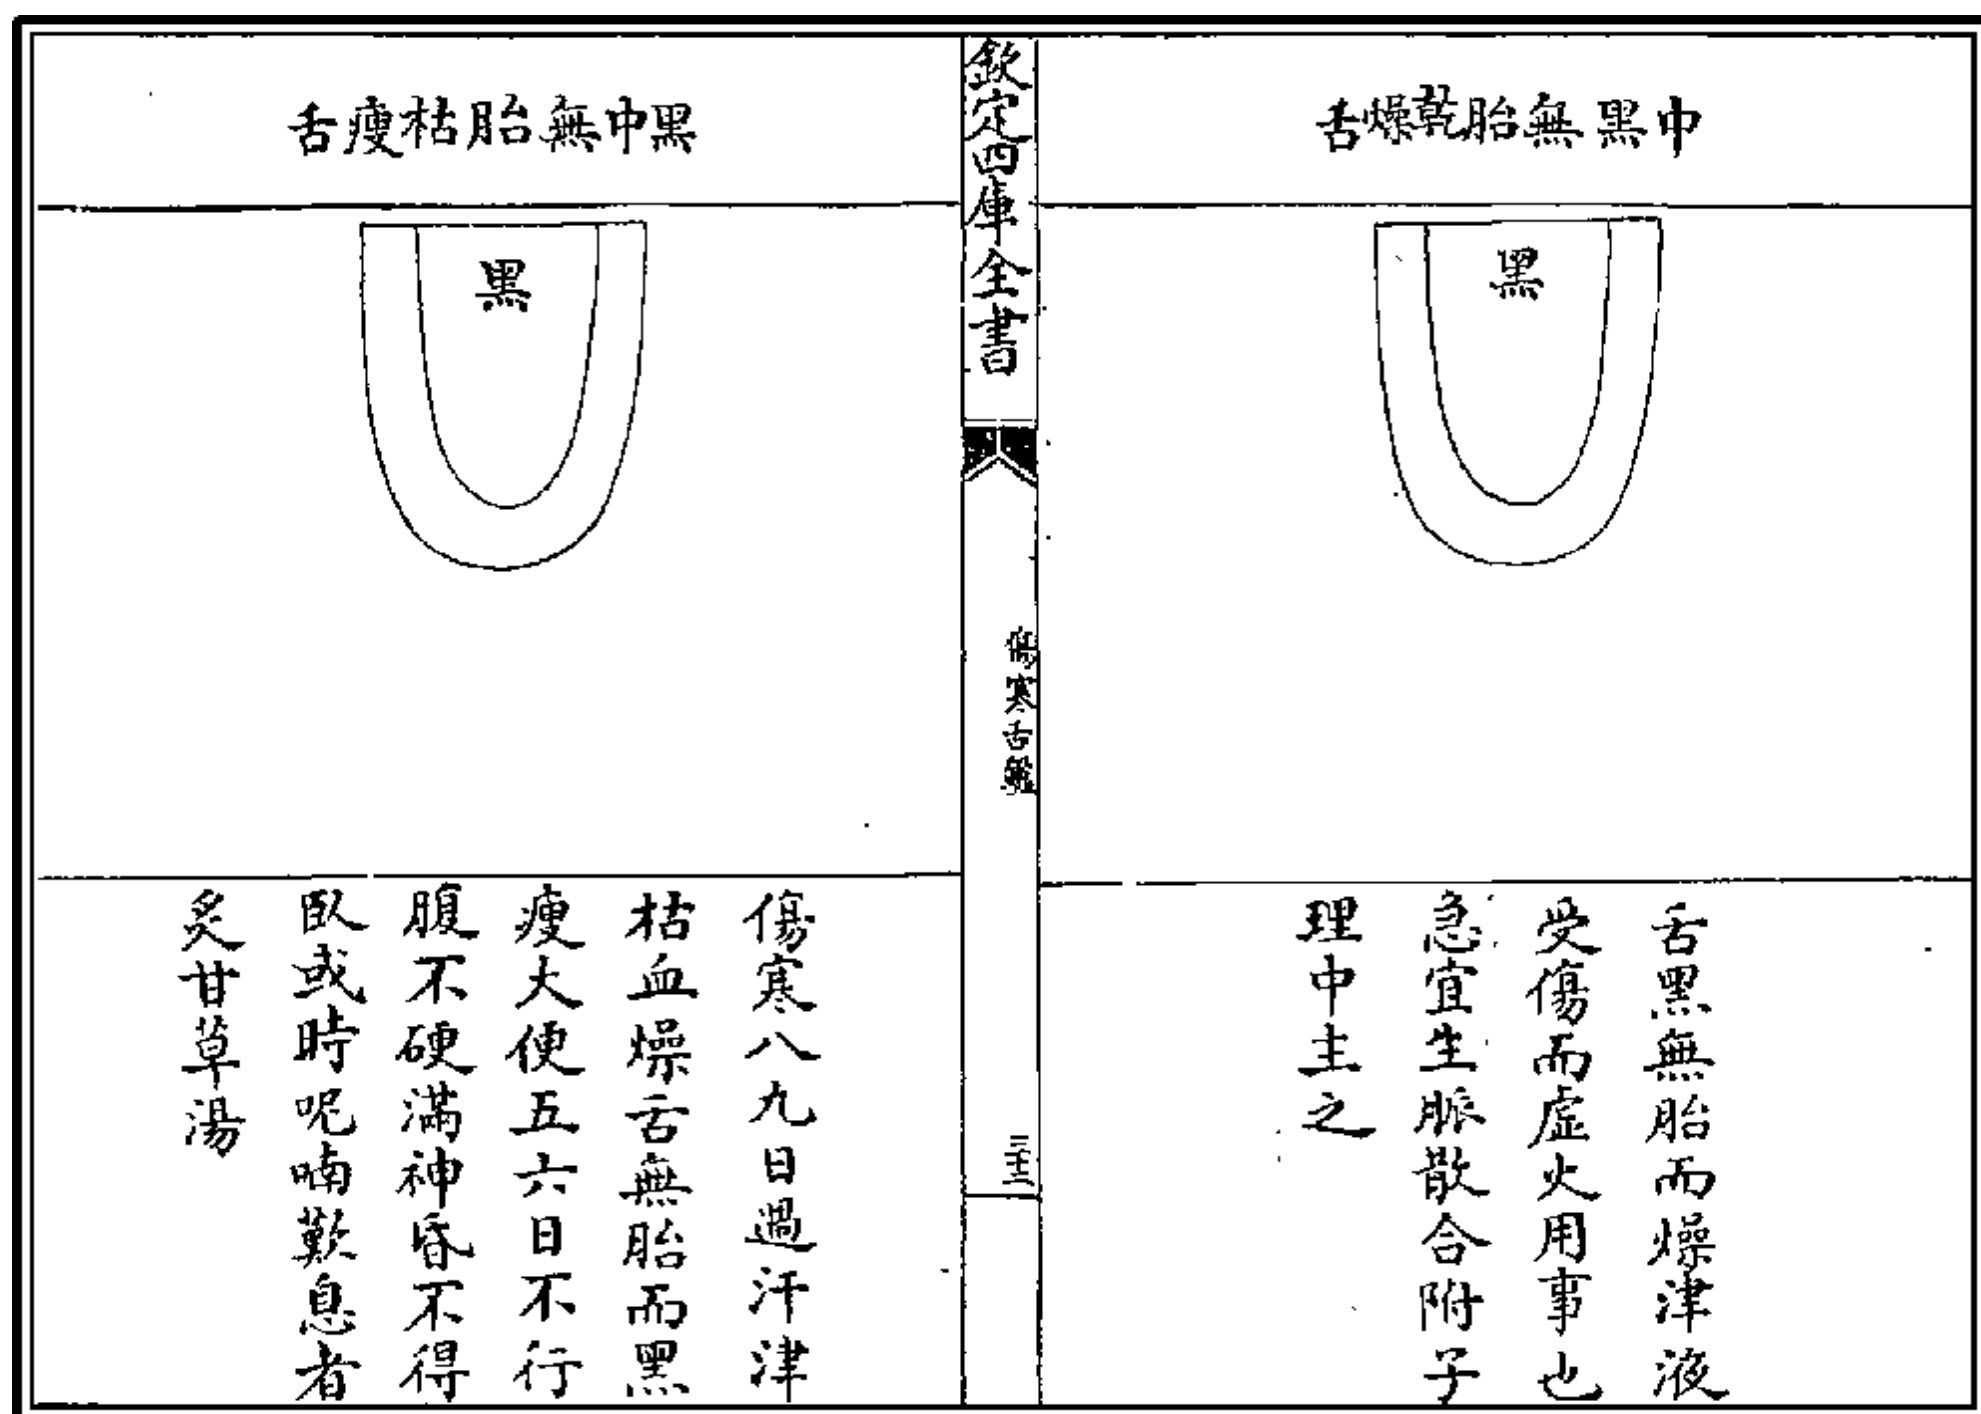 中黑無胎乾燥舌
黑
舌黑無胎而燥津液
受傷而虛火用事也
急宜生脈散合附子
理中主之
欽定四庫全書
傷寒舌鑑
三十三
黑中無胎枯瘦舌
黑
傷寒八九日過汗津
枯血燥舌無胎而黑
瘦大便五六日不行
腹不硬滿神昏不得
臥或時呢喃歎息者
炙甘草湯